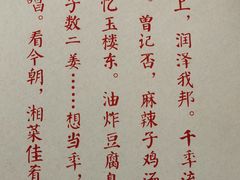 上，润泽我邦。千年
。曾记否，麻辣子鸡汤
忆玉楼东。油炸豆腐臭
子数二姜……想当年，
唱。看今朝，湘菜佳肴